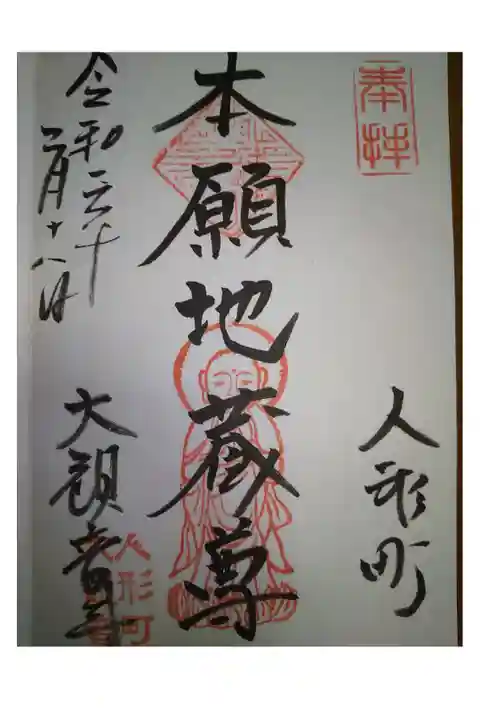 奉拝
人形町
本願地蔵尊
令和三年
二月十八日
大観音寺
人形町